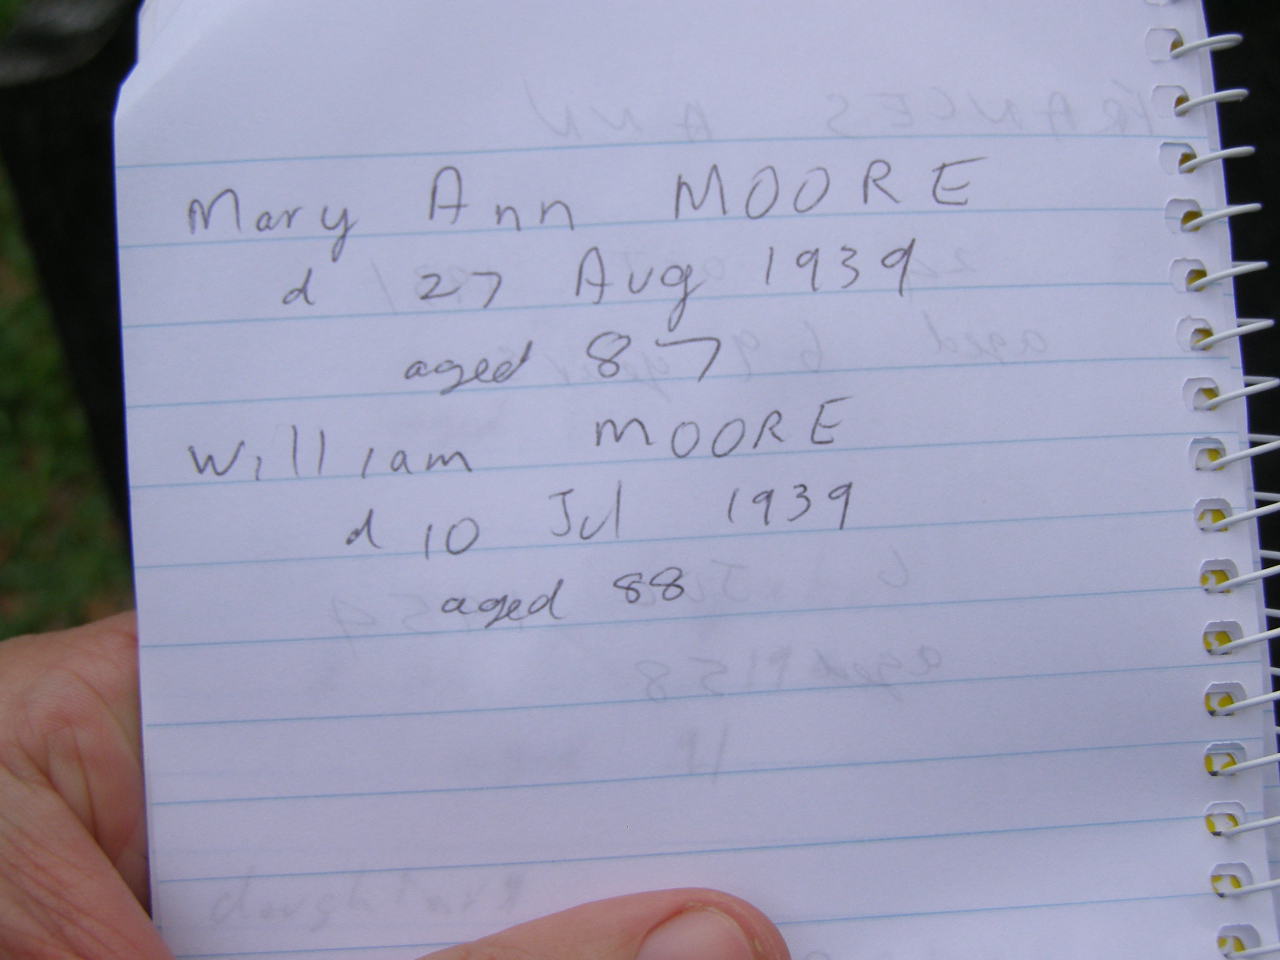 Mary Ann MOORE
d 27 Aug 1939
aged 87
William MOORE
d 10 Jul 1939
aged 88